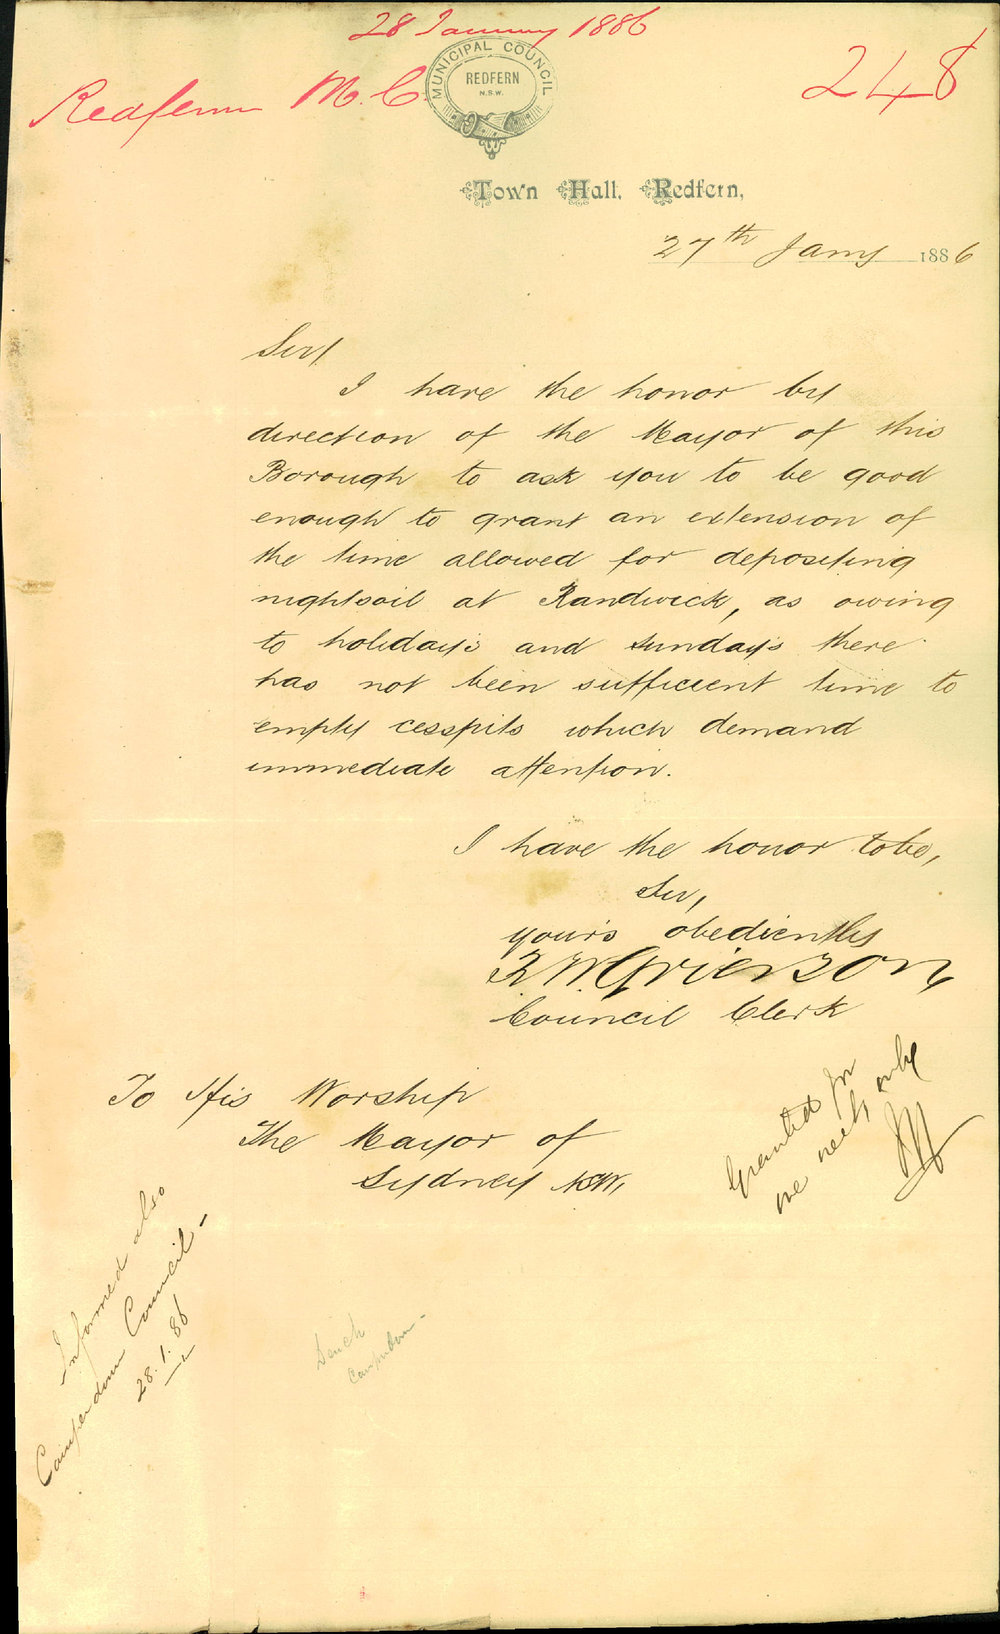 28 January 1886
Redfern M.C.
248
MUNICIPAL COUNCIL
REDFERN
N.S.W.
Town Hall, Redfern,
27th Jany 1886
Sir,
I have the honor by
direction of the Mayor of this
Borough to ask you to be good
enough to grant an extension of
the time allowed for depositing
nightsoil at Randwick, as owing
to holidays and sundays there
has not been sufficient time to
empty cesspits which demand
immediate attention.
I have the honor to be,
Sir,
yours obediently
Grierson
Council Clerk
To His Worship
The Mayor of
Sydney NSW,
Granted for
one week only
Informed also
Camperdown Council -
28.1.86
Camperdown -